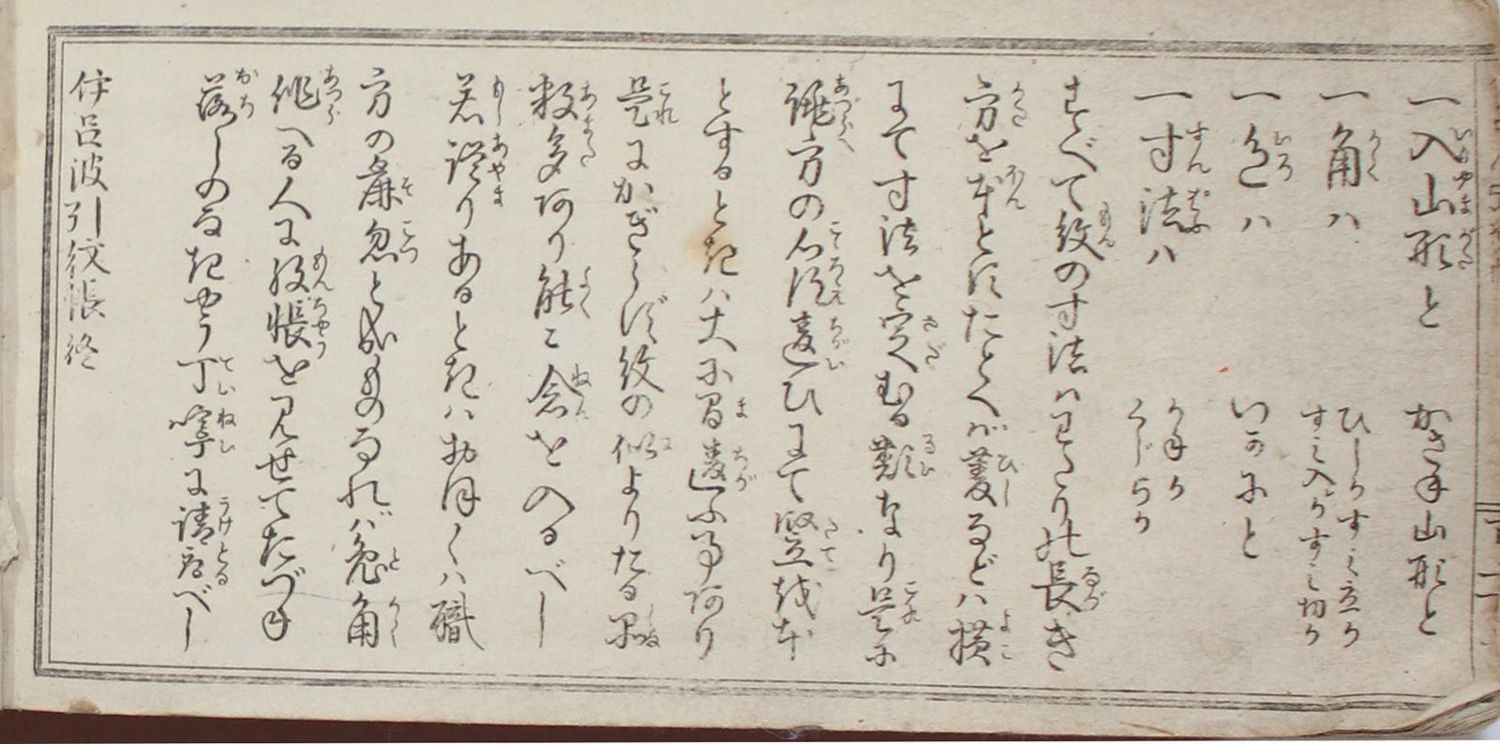 一入山形と　かさね山形と
一角ハ　ひしかすみ立か
すみ入かすみ切か
一色ハ　いかにと
一寸法ハ　かねか
くじらか
すべて紋の寸法ハわたりの長き
方を本とすたとへバ菱などハ横
にて寸法を定むる類なり是に
誂方の心得違ひにて竪を本
とするときハ大に間違ふ事あり
是にかぎらず紋の似よりたる品
数多あり能々念を入るべし
若誤りあるときハおほくハ職
方の麁忽と成ものなれバ兎角
誂へる人に紋帳を見せてたづね
落しのなきやう丁寧に請取べし
伊呂波引紋帳終